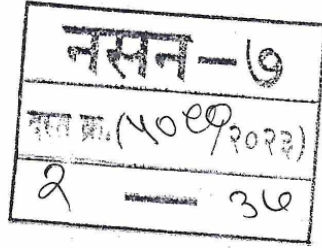 नसन-७
दस्त क्र. (५०९९/२०२३)
२ — ३७